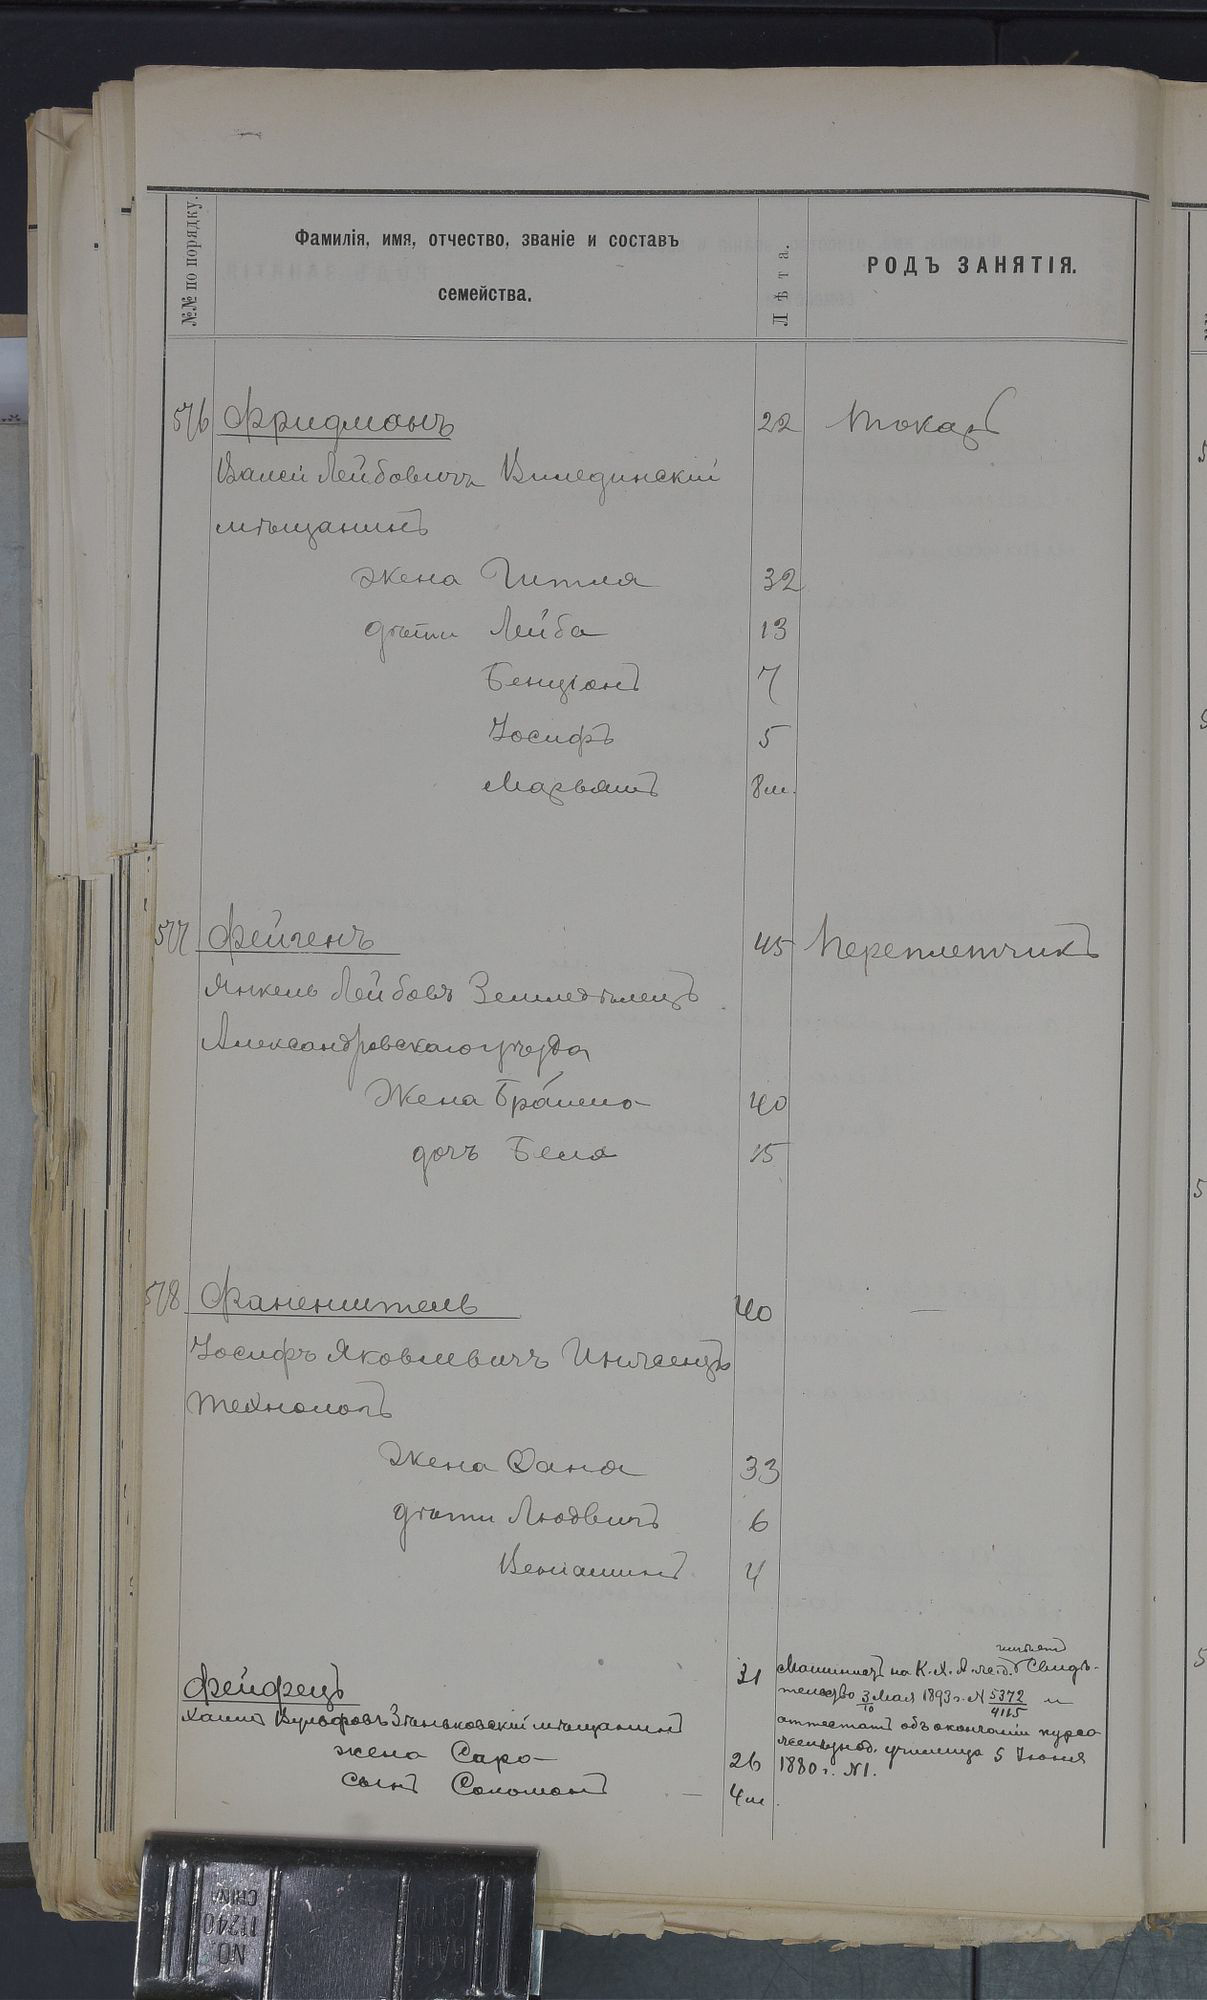 №№ по порядку.
Фамилія, имя, отчество, званіе и составъ
семейства.
Лѣта.
РОДЪ ЗАНЯТІЯ.
576 Фридманъ 22 Токарь
Лейбовичъ
мѣщанинъ
жена Гитля 32
дѣти Лейба 13
Бенціонъ 7
Іосифъ 5
Марьямъ 8 м.
577 Фейгенъ 45 Переплетчикъ
Янкель Лейбовъ Земледѣлецъ
Александровскаго уѣзда
Жена 40
дочь Бела 15
578 Фаненштель 40 —
Іосифъ Яковлевичъ Инженеръ
технологъ
Жена 33
дѣти Людвигъ 6
Веніаминъ 4
Фейферъ 31 Машинистъ на К. Х. А. ж. д. имѣетъ Свидѣ-
тельство 3/10 Мая 1893 г. № 5372/4115 и
Хаимъ Вульфовъ Зѣньковскій мѣщанинъ
аттестатъ объ окончаніи курса
жена Сара 26
желѣзнод. училища 5 Іюня
1880 г. № 1.
сынъ Соломонъ — 4 м.
NO.
11240
CHINA